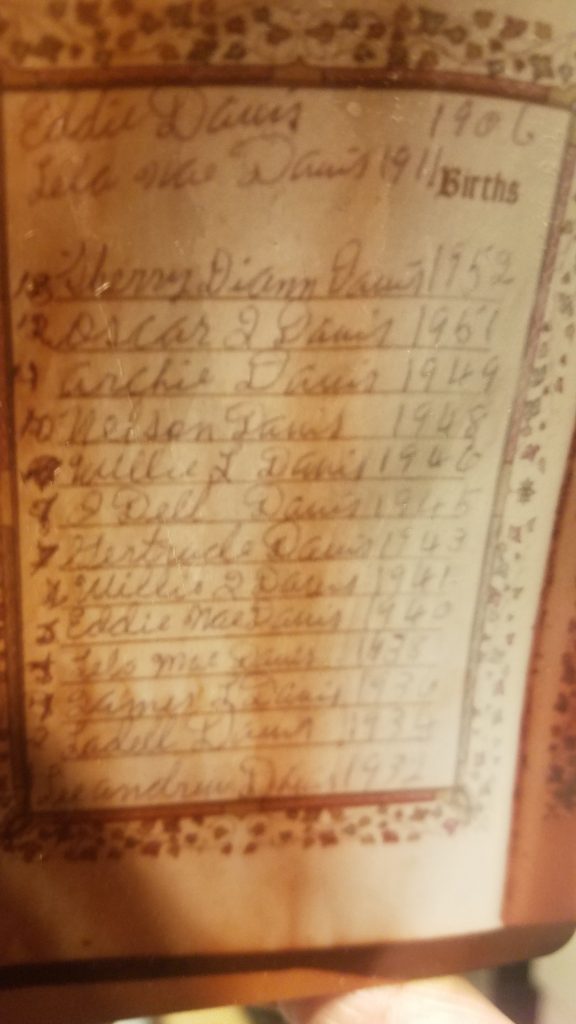 Eddie Davis 1906
Lela Mae Davis 1911
Births
13 Sherry Diann Davis 1952
12 Oscar J Davis 1951
11 Archie Davis 1949
10 Nelson Davis 1948
Willie L Davis 1946
J Dell Davis 1945
7 Gertrude Davis 1943
Willie J Davis 1941
5 Eddie Mae Davis 1940
4 Lela Mae Davis 1938
James L Davis 1936
Ladell Davis 1934
Leandrew Davis 1932